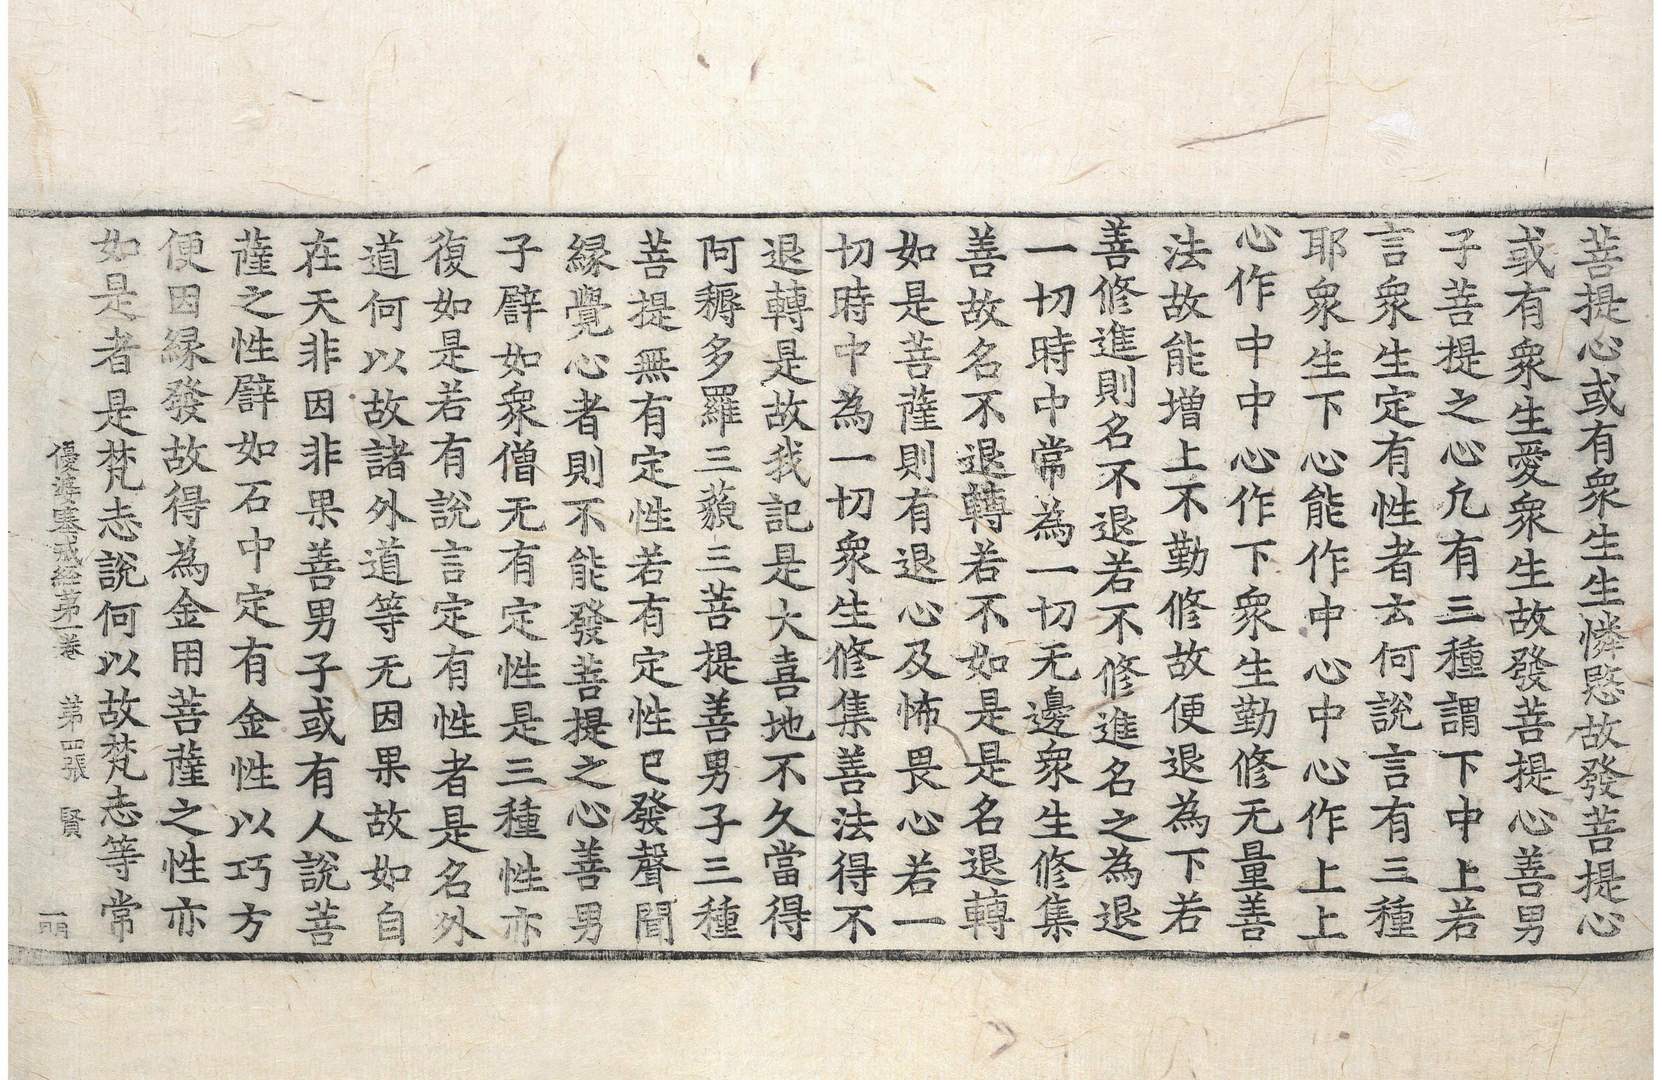 菩提心或有衆生生憐愍故發菩提心
或有衆生愛衆生故發菩提心善男
子菩提之心凢有三種謂下中上若
言衆生定有性者云何說言有三種
耶衆生下心能作中心中心作上上
心作中中心作下衆生勤修无量善
法故能增上不勤修故便退為下若
善修進則名不退若不修進名之為退
一切時中常為一切无邊衆生修集
善故名不退轉若不如是是名退轉
如是菩薩則有退心及怖畏心若一
切時中為一切衆生修集善法得不
退轉是故我記是大喜地不久當得
阿耨多羅三藐三菩提善男子三種
菩提無有定性若有定性已發聲聞
縁覺心者則不能發菩提之心善男
子譬如衆僧无有定性是三種性亦
復如是若有說言定有性者是名外
道何以故諸外道等无因果故如自
在天非因非果善男子或有人說菩
薩之性譬如石中定有金性以巧方
便因縁發故得為金用菩薩之性亦
如是者是梵志說何以故梵志等常
優婆塞戒經第一卷　第四張　賢